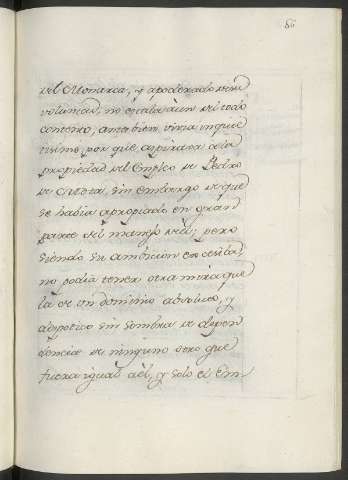 86
del Monarca, y apoderado de su
voluntad, no estaba aun del todo
contento, antes bien vivia inquie
tisimo, por que aspiraba a la
propiedad del Empleo de Pedro
de sin embargo de que
se habia apropiado en gran
parte del manejo de el; pero
siendo su ambicion en
no podia tener otra mira que
la de un dominio absoluto, y
despotico sin sombra de depen
dencia de ninguno otro que
fuera igual a el, y solo el Em